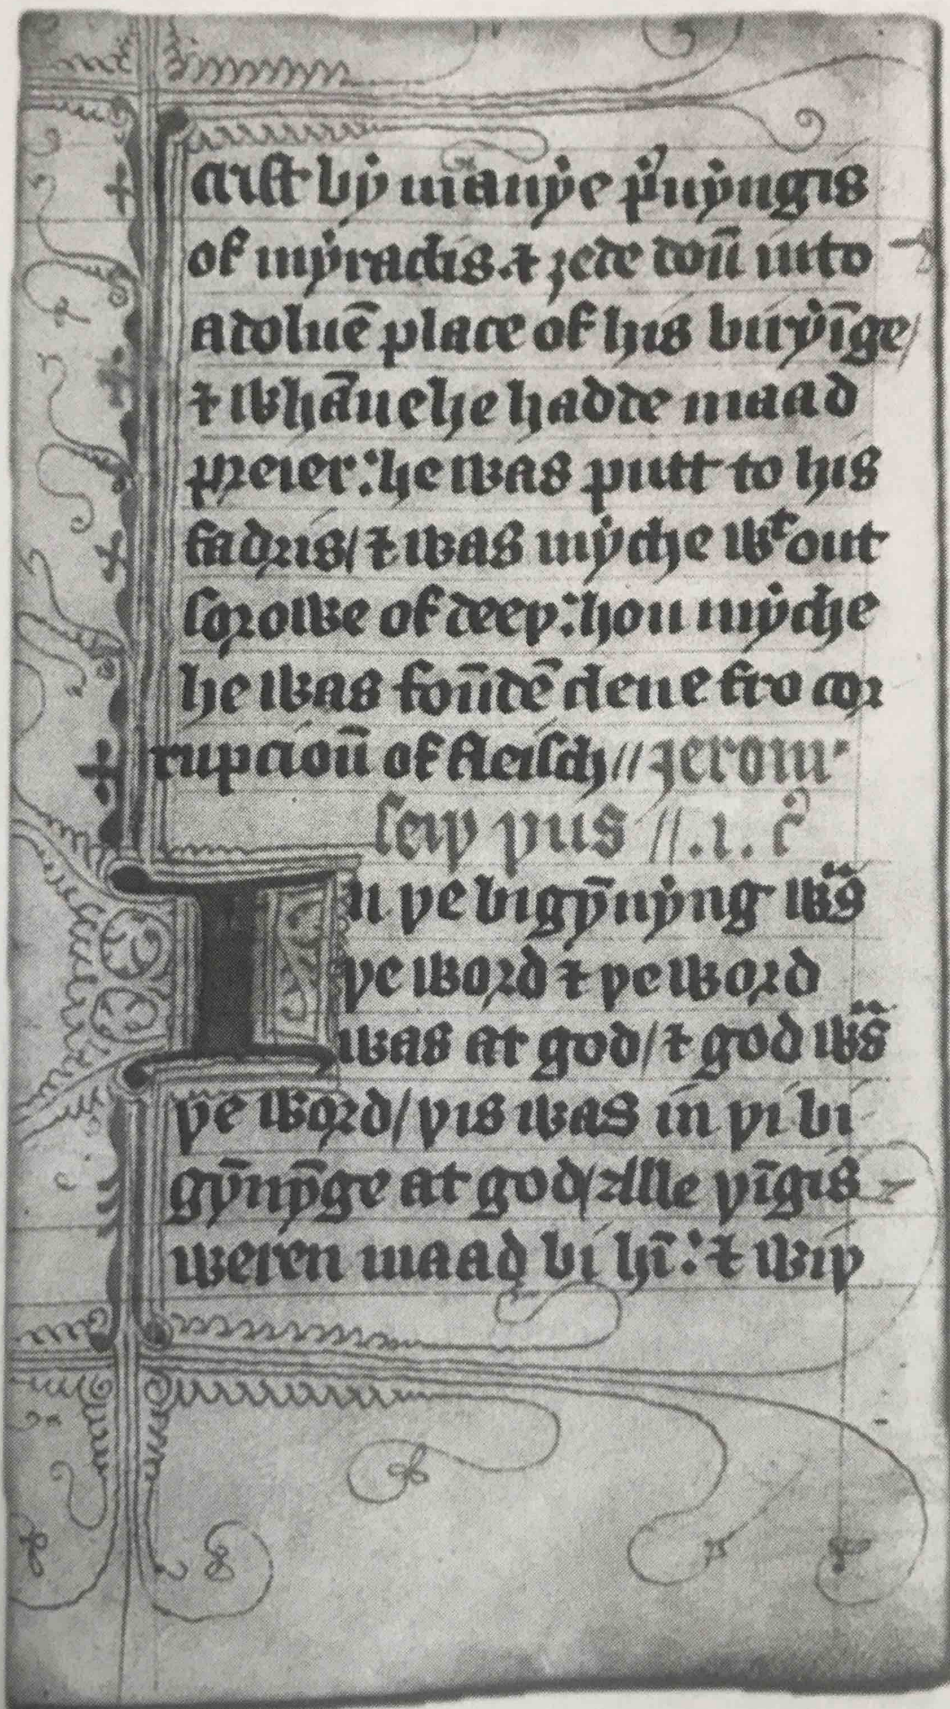 crist bẏ manẏe p̉uẏngis
of mẏraclis.⁊ ȝede doū in to
a doluē place of his burẏīge/
⁊ whāne he hadde maad
preier:he was putt to his
fadris/⁊ was mẏche wᵗout
sorowe of deeþ:hou mẏche
he was foūdē clene fro cor
rupcioū of fleisch//Jerom'
seiþ þus //.i. c̉
In þe bigȳnẏng wᵃs
þe word ⁊ þe word
was at god/⁊ god wᵃs
þe word/þis was in þi bi
gȳnȳge at god/alle þīgis
weren maad bi hī:⁊ wiþ